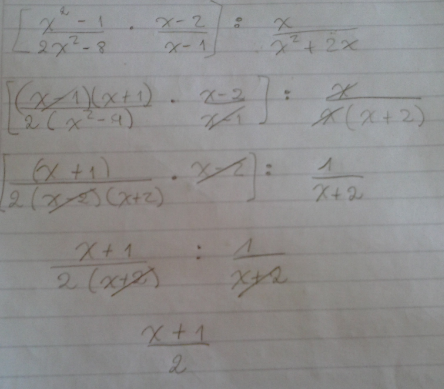 [ x² - 1 / 2x² - 8 · x - 2 / x - 1 ] : x / x² + 2x
[ (x - 1)(x + 1) / 2(x² - 4) · x - 2 / x - 1 ] : x / x(x + 2)
[ (x + 1) / 2(x - 2)(x + 2) · x - 2 ] : 1 / x + 2
x + 1 / 2(x + 2) : 1 / x + 2
x + 1 / 2